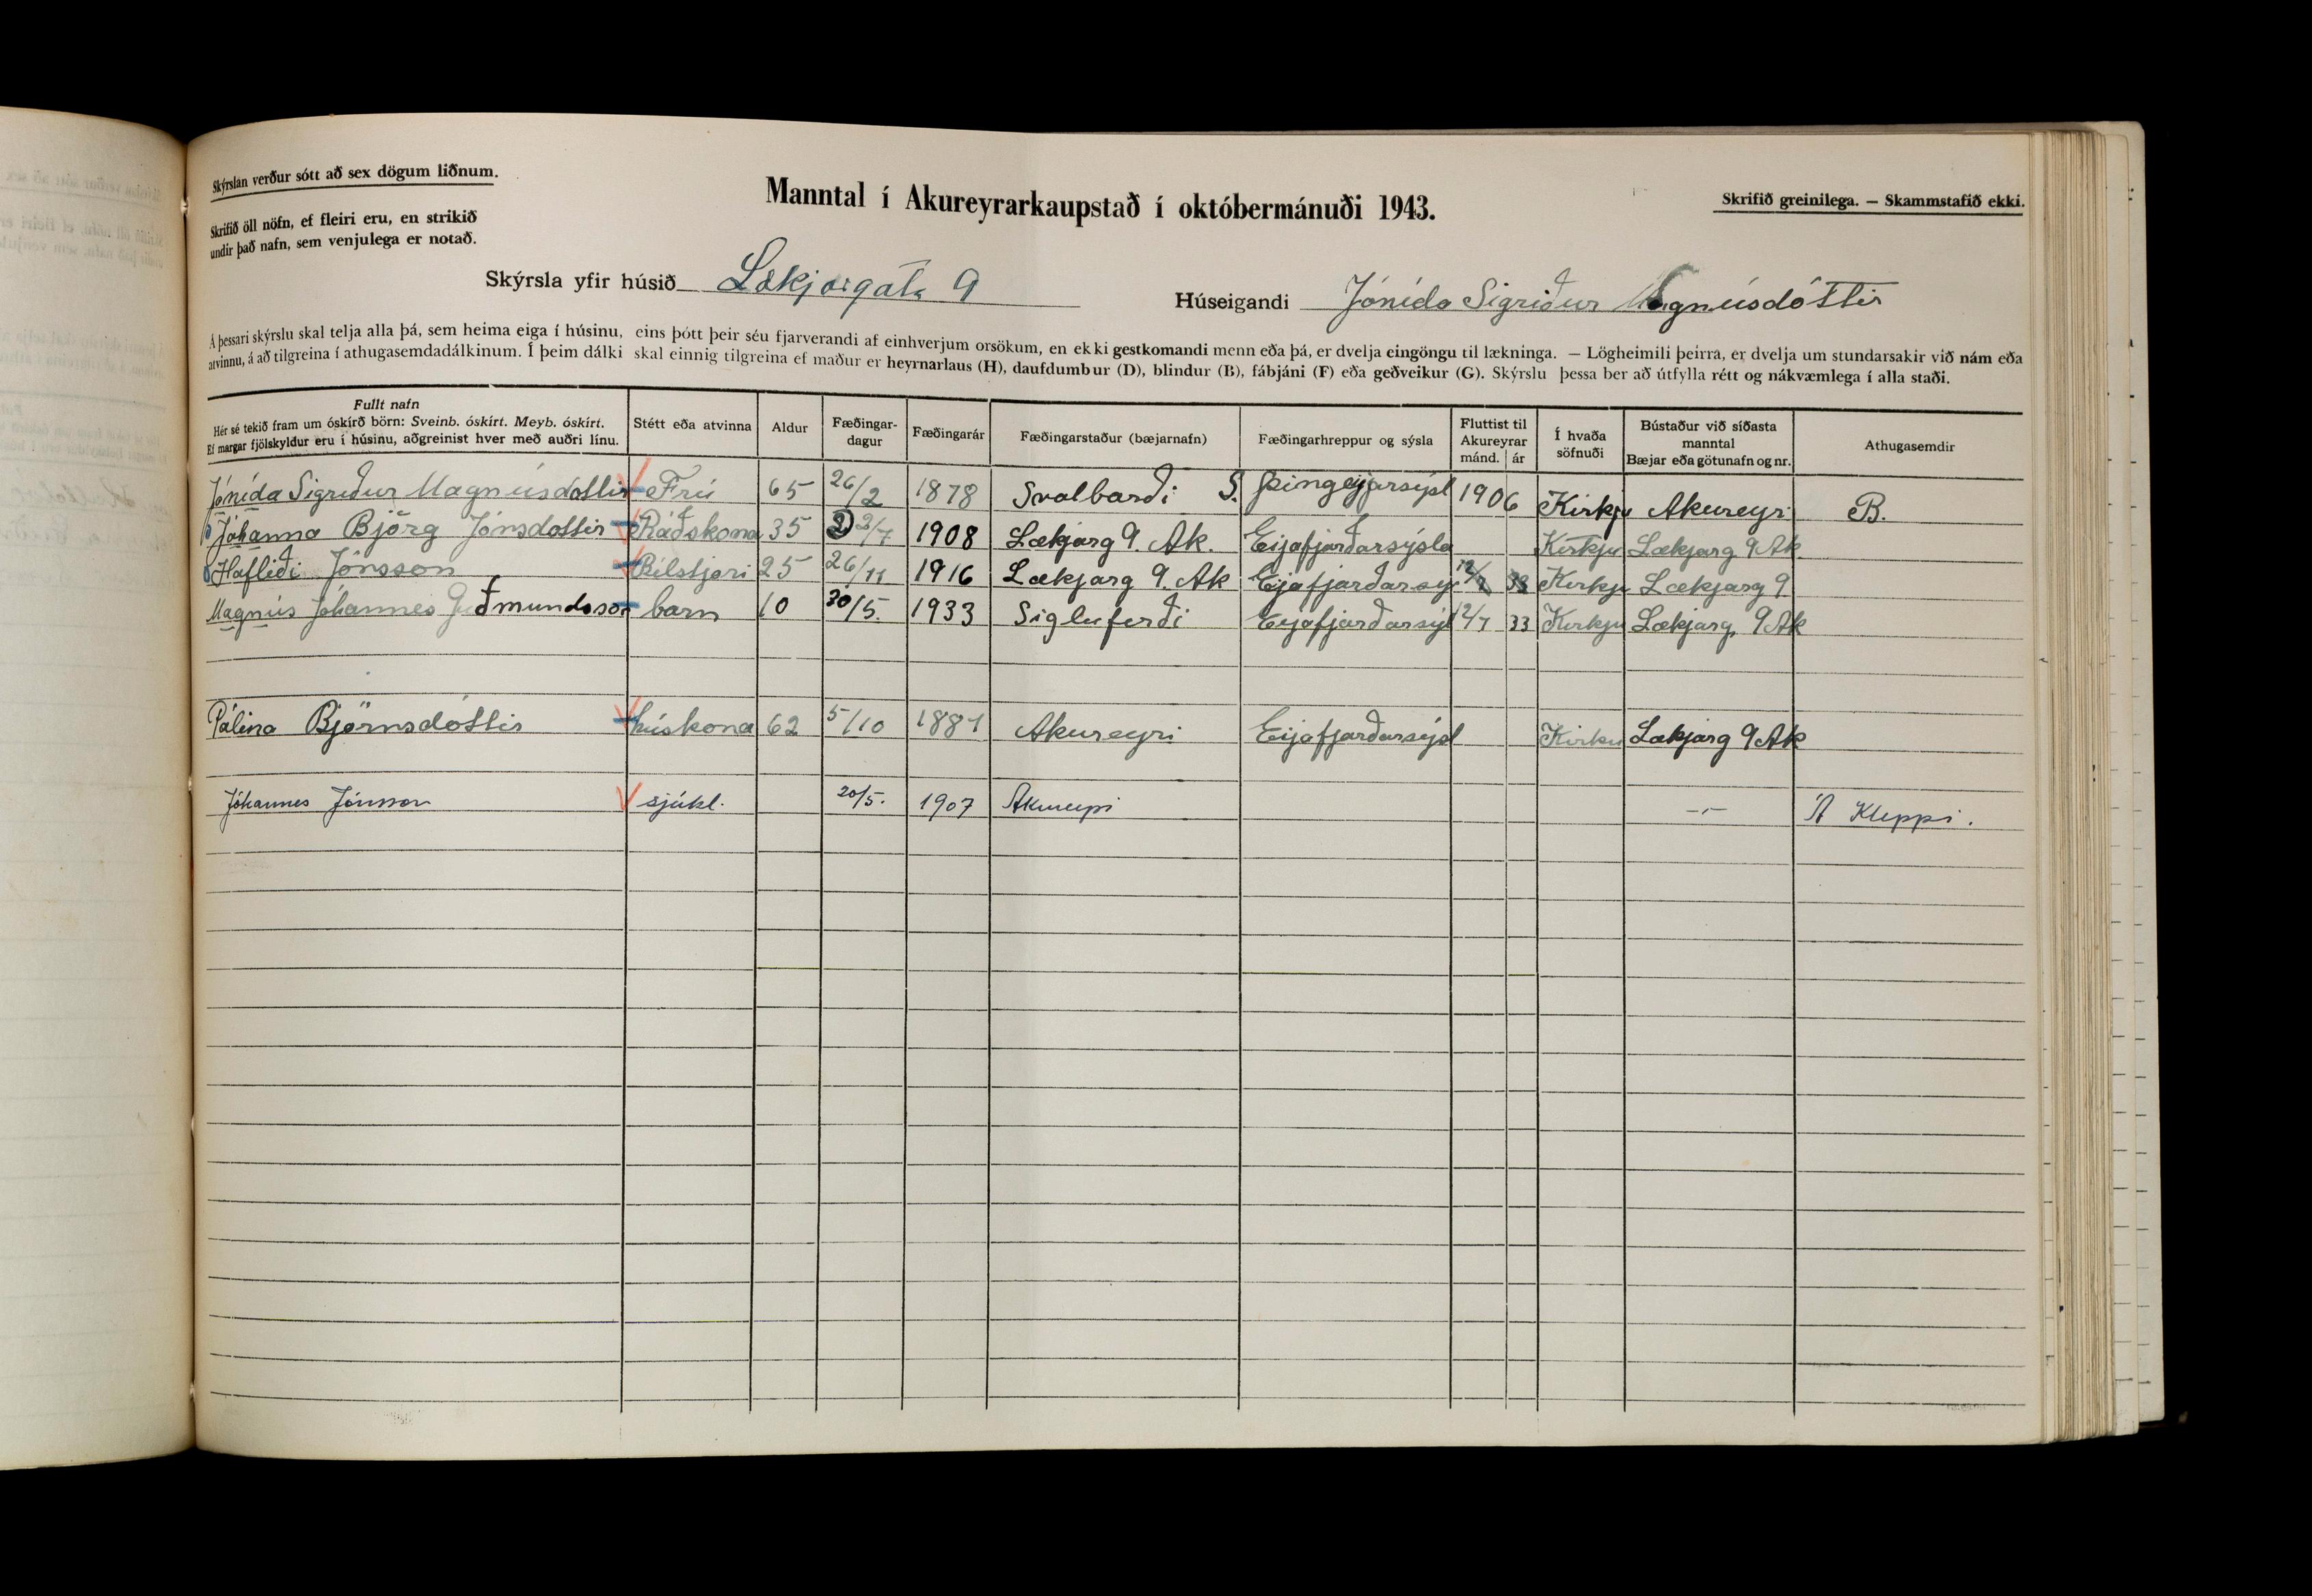 Skýrslan verður sótt að sex dögum liðnum.
Skrifið öll nöfn, ef fleiri eru, en strikið
undir það nafn, sem venjulega er notað.
Manntal í Akureyrarkaupstað í októbermánuði 1943.
Skrifið greinilega. — Skammstafið ekki.
Skýrsla yfir húsið Lækjargata 9
Húseigandi Jónída Sigríður Magnúsdóttir
Á þessari skýrslu skal telja alla þá, sem heima eiga í húsinu, eins þótt þeir séu fjarverandi af einhverjum orsökum, en ekki gestkomandi menn eða þá, er dvelja eingöngu til lækninga. — Lögheimili þeirra, er dvelja um stundarsakir við nám eða
atvinnu, á að tilgreina í athugasemdadálkinum. Í þeim dálki skal einnig tilgreina ef maður er heyrnarlaus (H), daufdumbur (D), blindur (B), fábjáni (F) eða geðveikur (G). Skýrslu þessa ber að útfylla rétt og nákvæmlega í alla staði.
Fullt nafn
Hér sé tekið fram um óskírð börn: Sveinb. óskírt. Meyb. óskírt.
Ef margar fjölskyldur eru í húsinu, aðgreinist hver með auðri línu.
Stétt eða atvinna
Aldur
Fæðingar-
dagur
Fæðingarár
Fæðingarstaður (bæjarnafn)
Fæðingarhreppur og sýsla
Fluttist til
Akureyrar
mánd. ár
Í hvaða
söfnuði
Bústaður við síðasta
manntal
Bæjar eða götunafn og nr.
Athugasemdir
Jónída Sigríður Magnúsdottir Frú 65 26/2 1878 Svalbarði S. Þingeyjarsýsl 1906 Kirkju Akureyri B.
Jóhanna Björg Jónsdottir Ráðskona 35 2/7 1908 Lækjarg 9. Ak. Eijafjarðarsýsla Kirkju Lækjarg 9 Ak
Hafliði Jónsson Bílstjori 25 26/11 1916 Lækjarg 9. Ak Eijafjarðarsýs Kirkju Lækjarg 9
Magnús Jóhannes Guðmundsson barn 10 30/5. 1933 Sigluferði Eyjafjarðarsýl 12/7 33 Kirkju Lækjarg, 9 Ak
Pálína Björnsdóttir húskona 62 5/10 1881 Akureyri Eijafjarðarsýsl Kirkju Lækjarg 9 Ak
Jóhannes Jónsson sjúkl. 20/5. 1907 Akureyri -„- Á Kleppi.